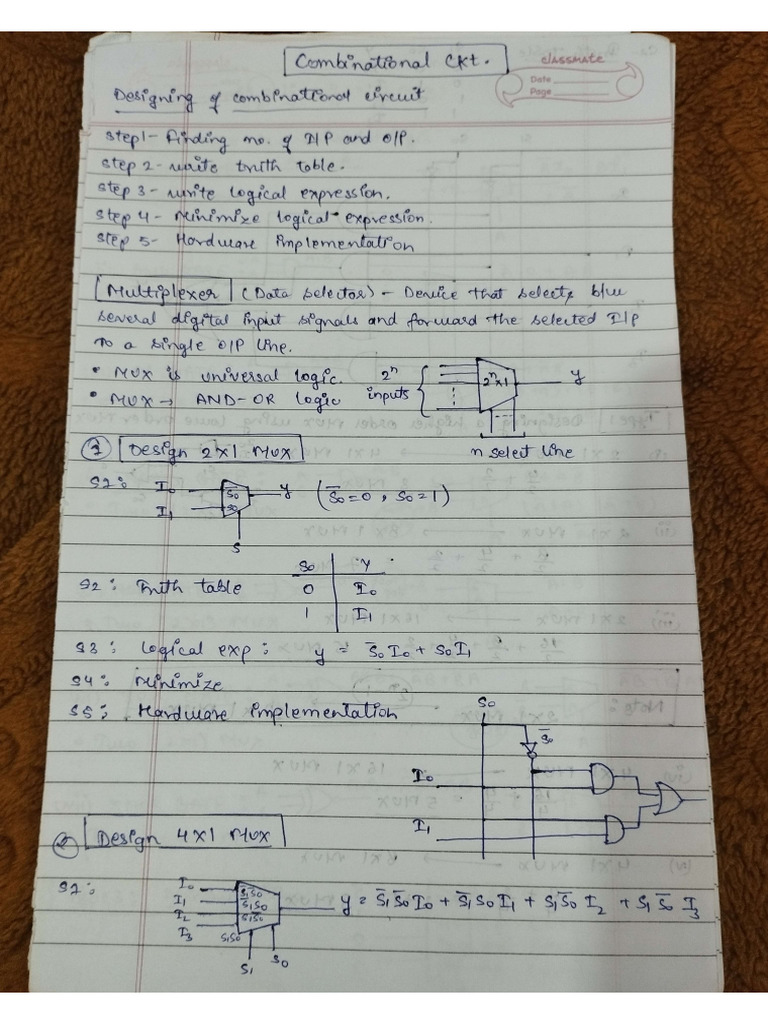 Combinational Ckt.
classmate
Date
Page
Designing of combinational circuit
Step1- Finding no. of I/P and O/P.
Step 2- write truth table.
Step 3- write logical expression.
Step 4- Minimize logical expression.
Step 5- Hardware implementation
Multiplexer (Data selector) - Device that selects b/w
several digital input signals and forward the selected I/P
to a single O/P line.
• MUX is universal logic.
• MUX → AND-OR logic
2ⁿ inputs
2ⁿx1
y
n select line
① Design 2x1 MUX
S1: I₀ S̅₀ y (S̅₀=0, S₀=1)
I₁ S₀
S
S₀ Y
S2: Truth table 0 I₀
1 I₁
S3: Logical exp: y = S̅₀I₀ + S₀I₁
S4: Minimize
S5: Hardware implementation
S₀
S̅₀
I₀
I₁
② Design 4x1 MUX
S1: I₀ S̅₁S̅₀
I₁ S̅₁S₀ y = S̅₁S̅₀I₀ + S̅₁S₀I₁ + S₁S̅₀ I₂ + S₁S̅₀ I₃
I₂ S₁S̅₀
I₃ S₁S₀
S₁ S₀